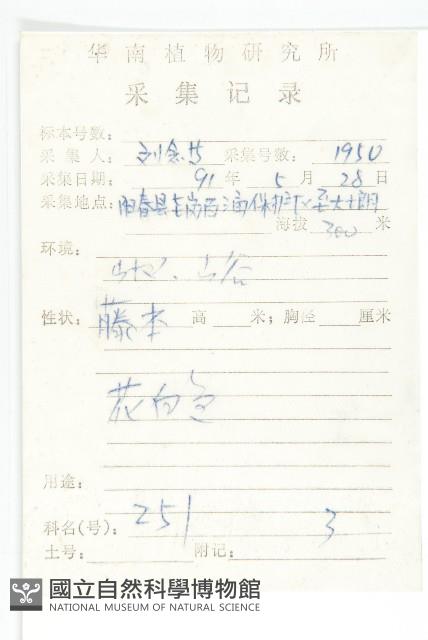 华南植物研究所
采集记录
标本号数：
采集人： 刘念 采集号数： 1950
采集日期： 91 年 5 月 28 日
采集地点： 阳春县 保护区至大
海拔 300 米
环境：
山谷
性状： 藤本 高 米；胸径 厘米
花白色
用途：
科名(号)： 251 3
土号： 附记：
國立自然科學博物館
NATIONAL MUSEUM OF NATURAL SCIENCE